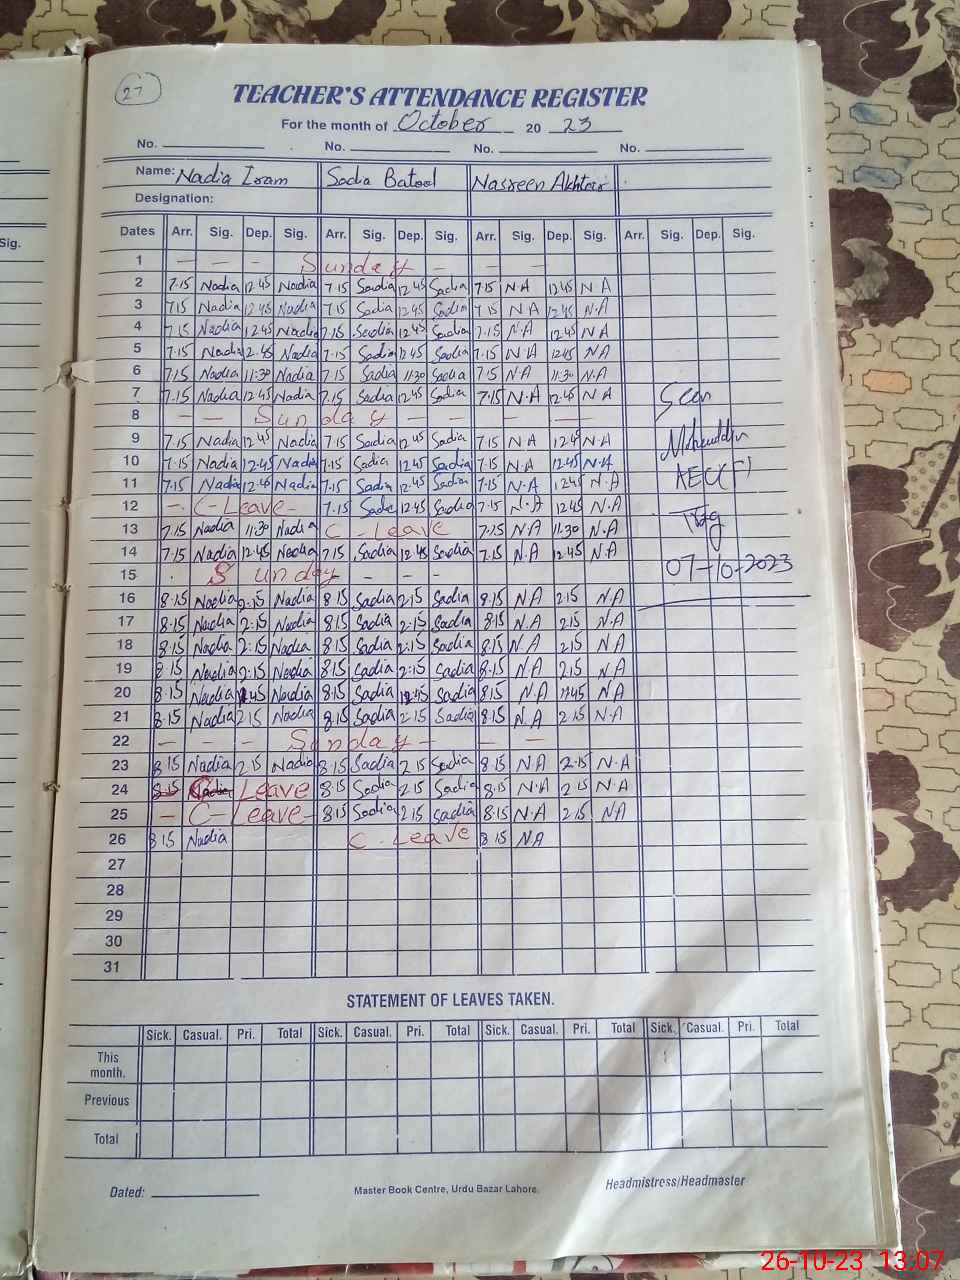 27
TEACHER'S ATTENDANCE REGISTER
For the month of October 20 23
No. No. No. No.
Name: Nadia Iram Sadia Batool Nasreen Akhtar
Designation:
Sig.
Dates Arr. Sig. Dep. Sig. Arr. Sig. Dep. Sig. Arr. Sig. Dep. Sig. Arr. Sig. Dep. Sig.
1 — — — Sunday — — —
2 7.15 Nadia 12.45 Nadia 7.15 Saadia 12.45 Sadia 7.15 N A 12.45 N A
3 7.15 Nadia 12.45 Nadia 7.15 Sadia 12.45 Sadia 7.15 N A 12.45 N.A
4 7.15 Nadia 12.45 Nadia 7.15 Sadia 12.45 Sadia 7.15 N.A 12.45 N A
5 7.15 Nadia 12.45 Nadia 7.15 Sadia 12.45 Sadia 7.15 N.A 12.45 N A
6 7.15 Nadia 11:30 Nadia 7.15 Sadia 11.30 Sadia 7.15 N.A 11.30 N.A
7 7.15 Nadia 12.45 Nadia 7.15 Sadia 12.45 Sadia 7.15 N.A 12.45 N A
Seen
8 — — Sunday — — — —
9 7.15 Nadia 12.45 Nadia 7.15 Sadia 12.45 Sadia 7.15 N A 12.45 N.A
10 7.15 Nadia 12.45 Nadia 7.15 Sadia 12.45 Sadia 7.15 N.A 12.45 N.A
11 7.15 Nadia 12.45 Nadia 7.15 Sadia 12.45 Sadia 7.15 N.A 12.45 N.A
12 — C-Leave- 7.15 Sadia 12.45 Sadia 7.15 N.A 12.45 N.A
13 7.15 Nadia 11:30 Nadia C - Leave 7.15 N.A 11.30 N.A
14 7.15 Nadia 12.45 Nadia 7.15 Sadia 12.45 Sadia 7.15 N.A 12.45 N.A
15 Sunday — — —
07-10-2023
16 8.15 Nadia 2:15 Nadia 8.15 Sadia 2.15 Sadia 8.15 N A 2.15 N.A
17 8.15 Nadia 2:15 Nadia 8.15 Sadia 2:15 Sadia 8.15 N.A 2.15 N.A
18 8.15 Nadia 2:15 Nadia 8.15 Sadia 2.15 Sadia 8.15 N.A 2.15 N.A
19 8.15 Nadia 2:15 Nadia 8.15 Sadia 2:15 Sadia 8.15 N.A 2.15 N.A
20 8.15 Nadia 12.45 Nadia 8.15 Sadia 12.45 Sadia 8.15 N.A 12.45 N.A
21 8.15 Nadia 2.15 Nadia 8.15 Sadia 2.15 Sadia 8.15 N.A 2.15 N.A
22 — — — Sunday — — —
23 8.15 Nadia 2.15 Nadia 8.15 Sadia 2.15 Sadia 8.15 N A 2.15 N.A
24 8.15 C Leave 8.15 Sadia 2.15 Sadia 8.15 N.A 2.15 N.A
25 — C-Leave- 8.15 Sadia 2.15 Sadia 8.15 N.A 2.15 N A
26 8.15 Nadia C - Leave 8.15 N A
27
28
29
30
31
STATEMENT OF LEAVES TAKEN.
Sick. Casual. Pri. Total Sick. Casual. Pri. Total Sick. Casual. Pri. Total Sick. Casual. Pri. Total
This
month.
Previous
Total
Dated: Master Book Centre, Urdu Bazar Lahore. Headmistress/Headmaster
26-10-23 13:07